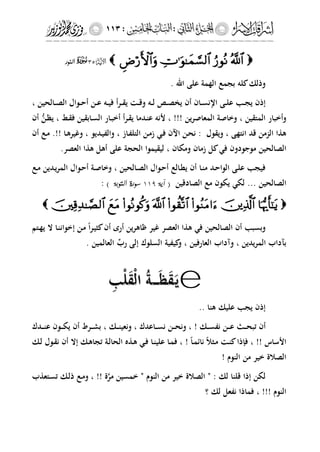 ١١٣ :
﴿ ٱللَّهُ نُورُ ٱلسَّمَـٰوَٰتِ وَٱلْأَرْضِ ﴾
وذلك كله بجمع الهمة على الله .
إذن يجب على الإنسان أن يخصص له وقت يقرأ فيه عن أحوال الصالحين ،
وأخبار المتقين ، وخاصة المعاصرين !!! ، لأنه عندما يقرأ أخبار السابقين فقط ، يظنُّ أن
هذا الزمن قد انتهى ، ويقول : نحن الآن في زمن التلفاز ، والفيديو ، وغيرها .!! مع أن
الصالحين موجودون في كل زمان ومكان ، ليقيموا الحجة على أهل هذا العصر.
فيجب على الواحد منا أن يطالع أحوال الصالحين ، وخاصة أحوال المريدين مع
الصالحين ... لكي يكون مع الصادقين ( آية ١١٩ سورة التوبة ) :
﴿ يَـٰٓأَيُّهَا ٱلَّذِينَ ءَامَنُوا۟ ٱتَّقُوا۟ ٱللَّهَ وَكُونُوا۟ مَعَ ٱلصَّـٰدِقِينَ ﴾
وبسبب أن الصالحين في هذا العصر غير ظاهرين أرى أن كثيراً من إخواننا لا يهتم
بآداب المريدين ، وآداب العارفين ، وكيفية السلوك إلى ربّ العالمين .
يَقَظَةُ الْقَلْبِ
إذن يجب عليك هنا ..
أن تبحث عن نفسك ! ونحن نساعدك ، ونعينك ، بشرط أن يكون عندك
الأساس !! ، فإذا كنت مثلاً نائماً ! ، فما علينا في هذه الحالة تجاهك إلا أن نقول لك
الصلاة خير من النوم !
لكن إذا قلنا لك : " الصلاة خير من النوم " خمسين مرّة !! ، ومع ذلك تستعذب
النوم !!! ، فماذا نفعل لك ؟